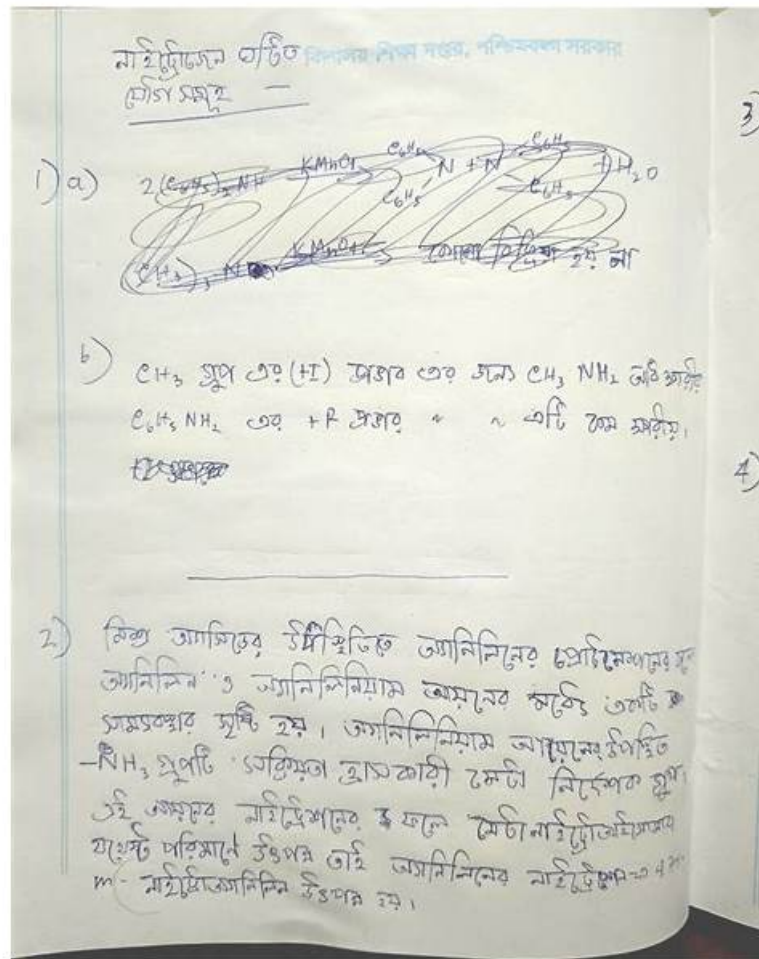 নাইট্রোজেন ঘটিত
বিদ্যালয় শিক্ষা দপ্তর, পশ্চিমবঙ্গ সরকার
যৌগ সমূহ —
3)
1) a) 2(C6H5)2 NH KMnO4 C6H5 C6H5 N + N C6H5 C6H5 + H2O
(CH3) NH KMnO4 কোনো বিক্রিয়া হয় না
b) CH3 গ্রুপ এর (+I) প্রভাব এর জন্য CH3 NH2
C6H5 NH2 এর +R প্রভাব " " এটি কম ক্ষারীয়।
4)
2) মিশ্র অ্যাসিডের উপস্থিতিতে অ্যানিলিনের প্রোটনেশনের
অ্যানিলিন ও অ্যানিলিনিয়াম আয়নের মধ্যে একটি
সাম্যাবস্থার সৃষ্টি হয়। অ্যানিলিনিয়াম আয়নের উপস্থিত
–NH3 গ্রুপটি সক্রিয়তা হ্রাসকারী মেটা নির্দেশক গ্রুপ।
এই আয়নের নাইট্রেশনের ফলে মেটা
যথেষ্ট পরিমাণে উৎপন্ন তাই অ্যানিলিনের নাইট্রেশনে
m- নাইট্রোঅ্যানিলিন উৎপন্ন হয়।